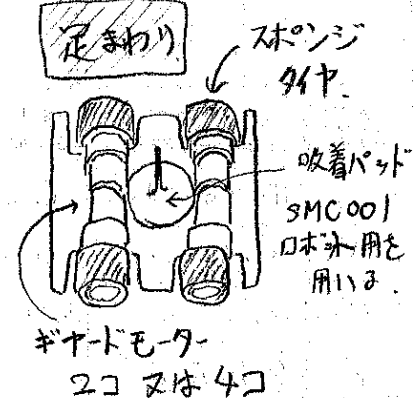 足まわり
スポンジ
タイヤ.
吸着パッド
SMC001
ロボ氷用を
用いる.
ギヤードモーター
2コ 又は 4コ